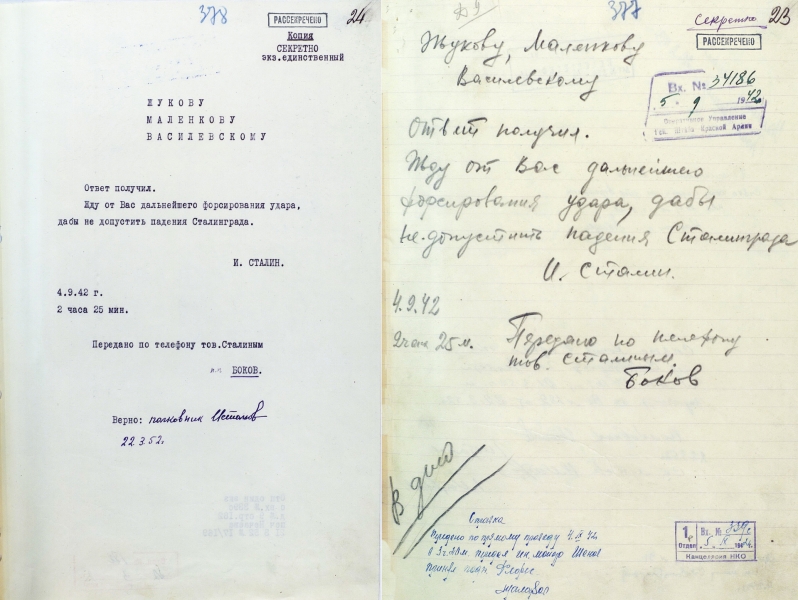 378
24
РАССЕКРЕЧЕНО
Копия
СЕКРЕТНО
экз.единственный
ЖУКОВУ
МАЛЕНКОВУ
ВАСИЛЕВСКОМУ
Ответ получил.
Жду от Вас дальнейшего форсирования удара,
дабы не допустить падения Сталинграда.
И. СТАЛИН.
4.9.42 г.
2 часа 25 мин.
Передано по телефону тов.Сталиным
п.п. БОКОВ.
Верно: полковник
22.3.52г.
377
Секретно
23
РАССЕКРЕЧЕНО
Жукову, Маленкову
Василевскому
Вх. № 34186
5. 9 1942
Оперативное Управление
Ген. Штаба Красной Армии
Ответ получил.
Жду от Вас дальнейшего
форсирования удара, дабы
не допустить падения Сталинграда
И. Сталин.
4.9.42
2 час 25 м.
Передано по телефону
тов. Сталиным.
Боков
В дело
Справка
Передано по прямому проводу 4.IX.42
в 3 ч.
1
Отдел
Вх. №
5. IX 194
Канцелярия НКО